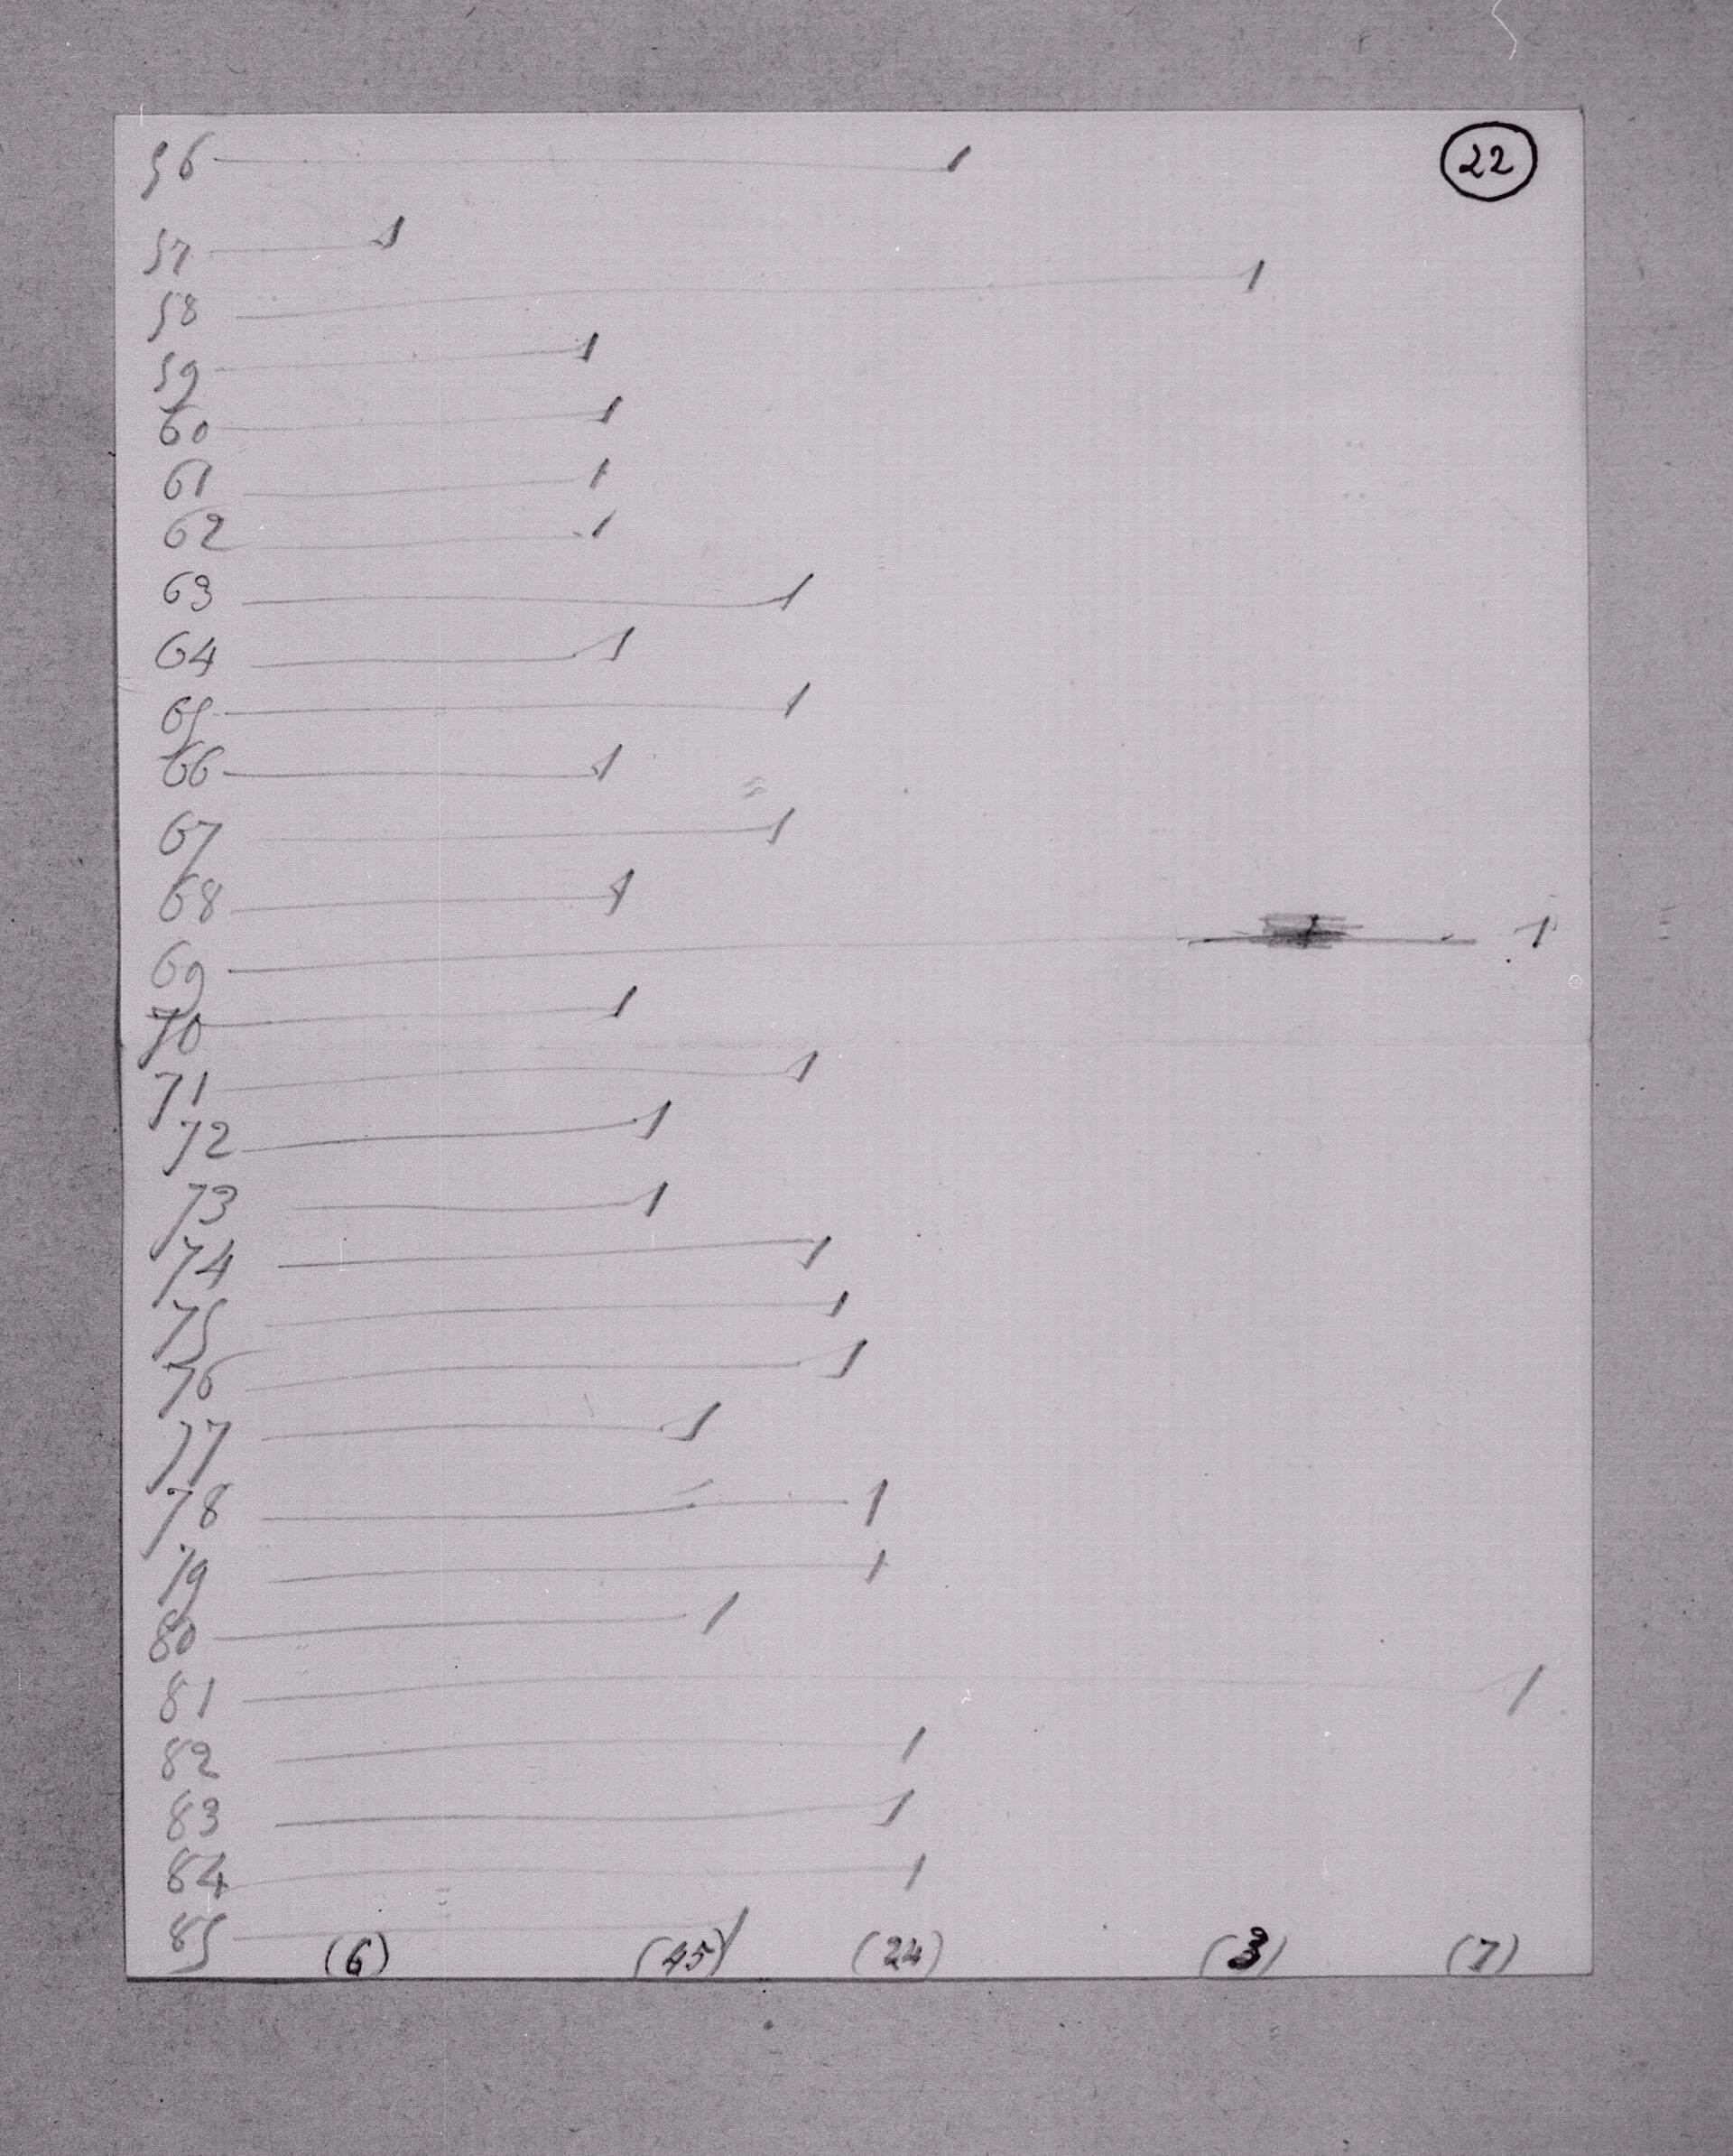 22
56 1
57 1
58 1
59 1
60 1
61 1
62 1
63 1
64 1
65 1
66 1
67 1
68 1
69 1
70 1
71 1
72 1
73 1
74 1
75 1
76 1
77 1
78 1
79 1
80 1
81 1
82 1
83 1
84 1
85 1
(6) (45) (24) (3) (7)